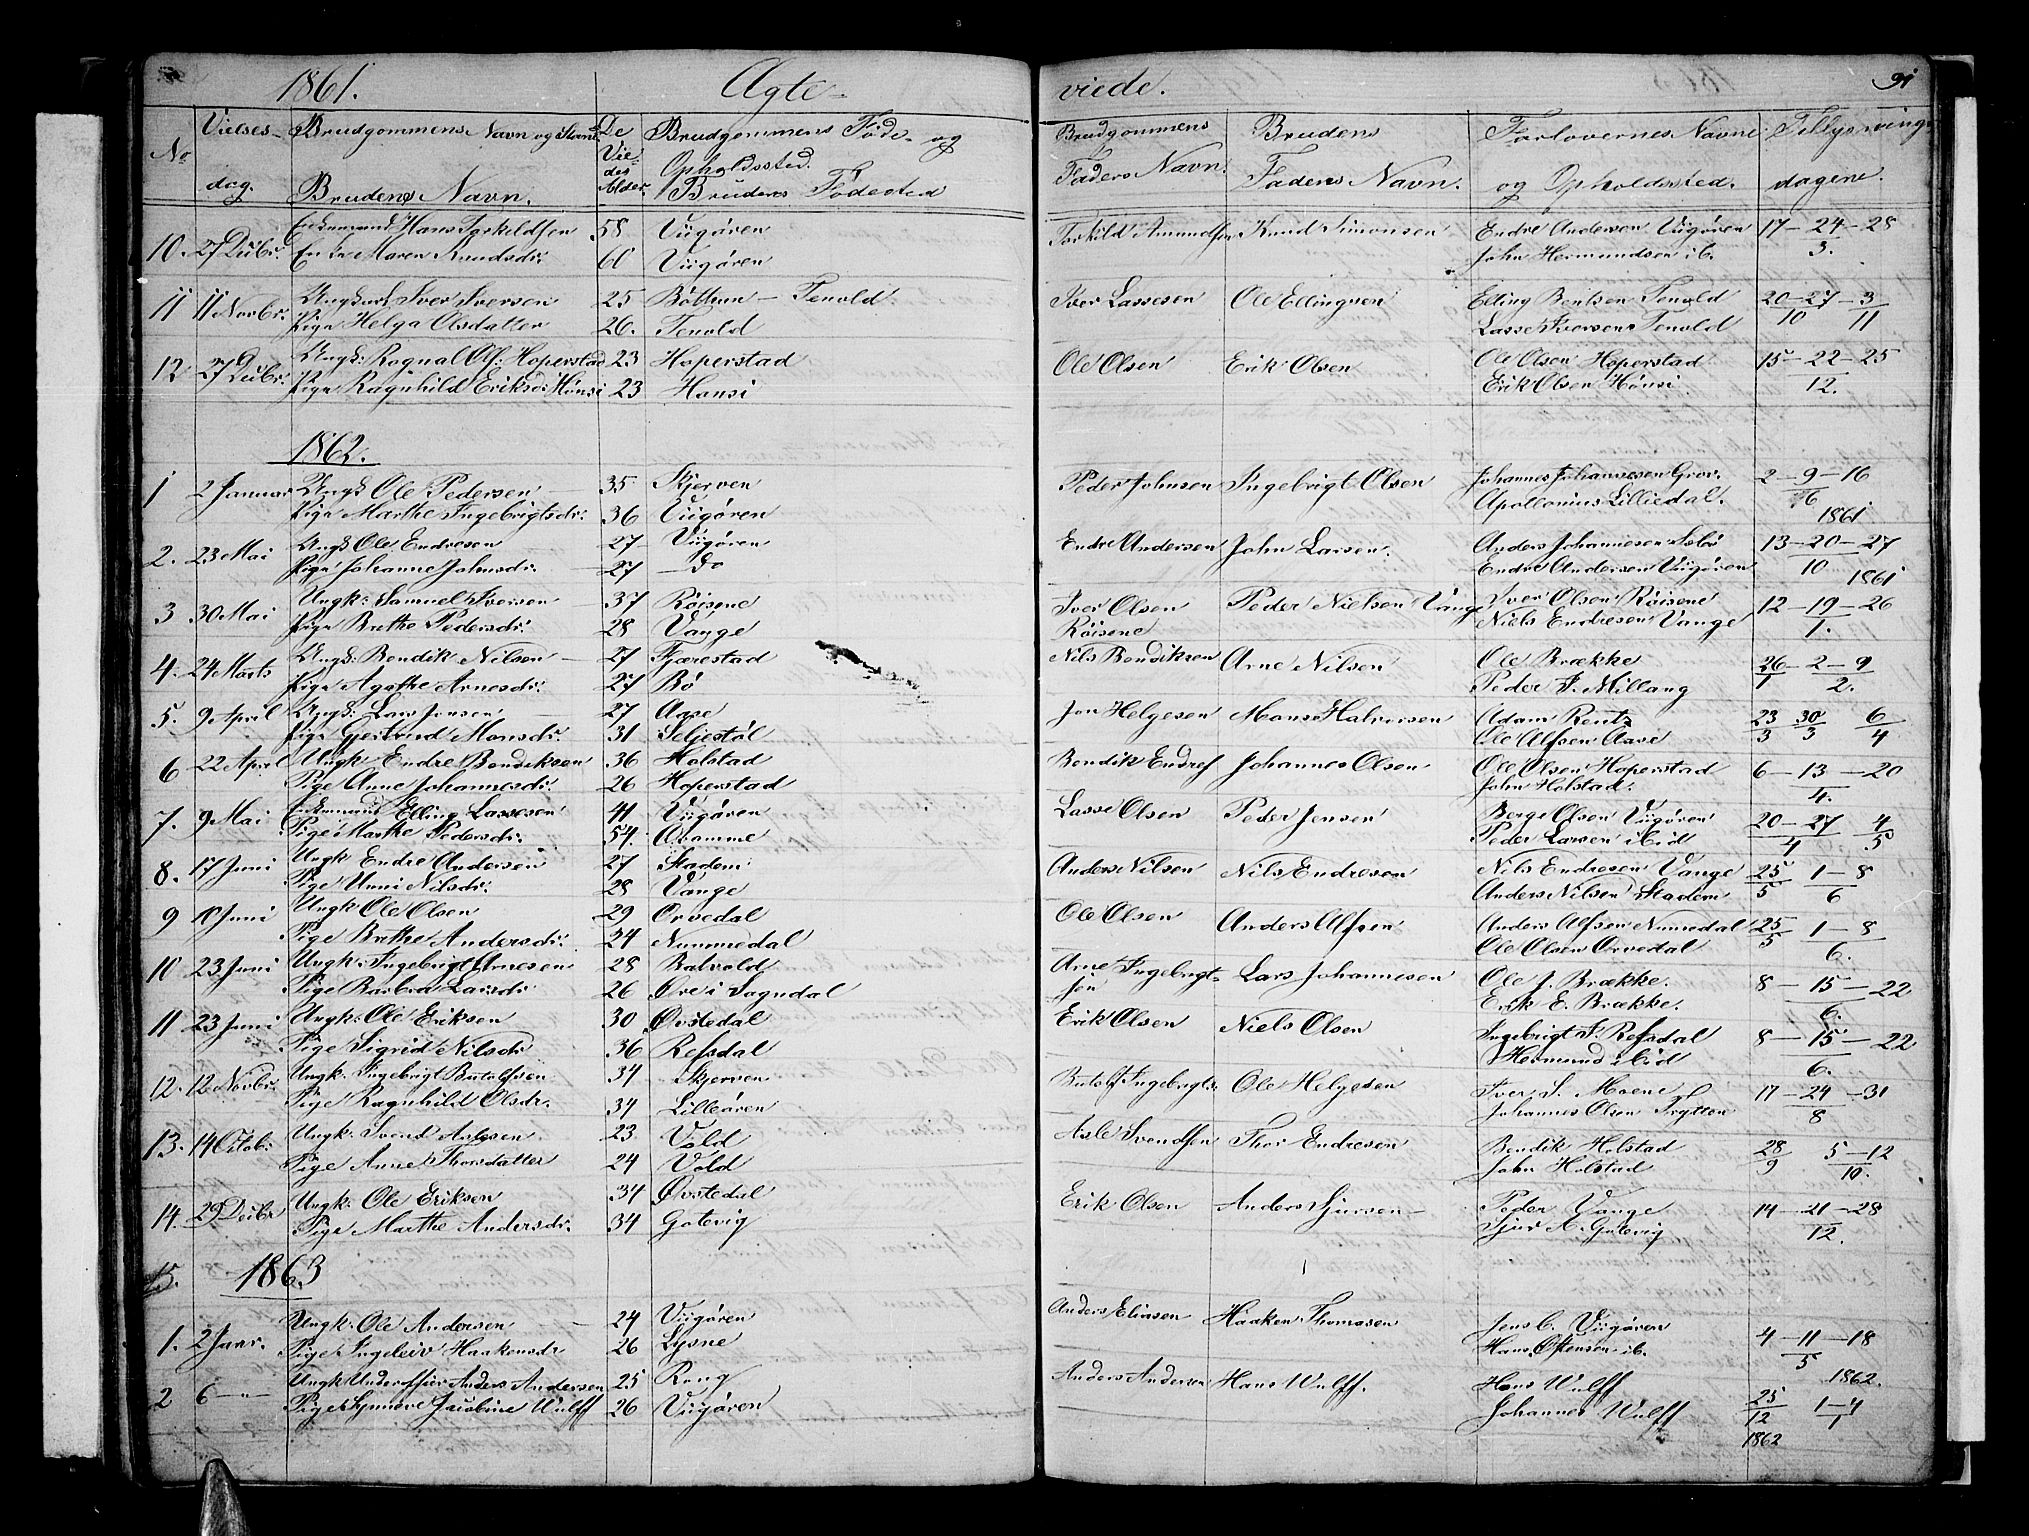 1861. Ægte- viede. 91
No Vielses- dag. Brudgommens Navn og Stand De Viedes Alder. Brudgommens Føde- og Opholdssted. Brudgommens Faders Navn. Brudens Faders Navn. Forlovernes Navne og Opholdssted. Tillysnings dagene.
Brudens Navn. Brudens Fødested
10. 27 Dcbr. Enkemand Hans Torkildsen 58 Viigøren Torkild Amundsen Knud Simonsen Endre Andersen Viigøren 17 - 24 - 28
Enke Maren Knudsdr. 60 Viigøren John Hermundsen ib. 3.
11 11 Novbr. Ungkarl Iver Iversen 25 Bøthun - Tenold Iver Lassesen Ole Ellingsen Elling Bentsen Tenold 20 - 27 - 3
Pige Helga Olsdatter 26. Tenold Lasse Iversen Tenold 10 11
12 27 Dcbr. Ungk: Rognal Ols: Hoperstad 23 Hoperstad Ole Olsen Erik Olsen Ole Olsen Hoperstad 15 - 22 - 25
Pige Ragnhild Eriksd: Hønsi 23 Hønsi Erik Olsen Hønsi. 12.
1862.
1 2 Januar Ungk Ole Pedersen 35 Skjerven Peder Johnsen Ingebrigt Olsen Johannes Johannesen Grov. 2 - 9 - 16
Pige Marthe Ingebrigtsdr. 36 Viigøren Apollonius Lilliedal. 6 1861
2. 23 Mai Ungk Ole Endresen 27 Viigøren Endre Andersen John Larsen. Anders Johannesen 13 - 20 - 27
Pige Johanne Johnsdr. 27 - do Endre Andersen Viigøren 10 1861
3 30 Mai Ungk: Samuel Iversen 37 Röisene Iver Olsen Röisene Peder Nielsen Vange Iver Olsen Röisene 12 - 19 - 26
Pige Brethe Pedersdr. 28 Vange Niels Endresen Vange 1.
4. 24 Marts Ungk: Bendik Nilsen 27 Fjærestad Nils Bendiksen Arne Nilsen Ole Brække 26 - 2 - 9
Pige Agathe Arnesdr. 27 Bø Peder I. Millang 1 2.
5. 9 April Ungk: Lars Jonsen 27 Aase Jon Helgesen Mons Halvorsen Adam Rentz 23 30 6
Pige Gjertrud Monsdr. 31 Seljestøl Ole Alfsen Aase 3 3 4
6 22 April Ungk: Endre Bendiksen 36 Holstad Bendik Endres Johannes Olsen Ole Olsen Hoperstad 6 - 13 - 20
Pige Anne Johannesdr. 26 Hoperstad John Holstad. 4.
7. 9 Mai Enkemand Elling Lassesen 41 Viigøren Lasse Olsen Peder Jensen Berge Olsen Viigøren 20 - 27 4
Pige Marthe Pedersdr. 54. Aramme Peder Larsen ibid 4 5
8. 17 Juni Ungk Endre Andersen 27 Stadem Anders Nilsen Nils Endresen Nils Endresen Vange 25 1 - 8
Pige Unni Nilsdr. 28 Vange Anders Nilsen Stadem 5 6
9 18 Juni Ungk Ole Olsen 29 Orvedal Ole Olsen Anders Alfsen Anders Alfsen Nummedal 25 1 - 8
Pige Brethe Andersdr. 24 Nummedal Ole Olsen Orvedal 5 6.
10 23 Juni Ungk: Ingebrigt Arnesen 28 Balvold Arne Ingebrigtsen Lars Johannesen Ole J. Brække. 8 - 15 - 22
Pige Barbra Larsdr 26 Øre i Sogndal Erik E. Brække. 6.
11 23 Juni Ungk: Ole Eriksen 30 Øvstedal Erik Olsen Niels Olsen Ingebrigt I. Refsdal 8 - 15 - 22
Pige Sigrid Nilsdr 36 Refsdal Hermund ibid 6.
12. 12 Novbr. Ungk. Ingebrigt Butolfsen 34 Skjerven Butolf Ingebrigts. Ole Helgesen Iver S. Moene 17 - 24 - 31
Pige Ragnhild Olsdr. 34 Lilleøren Johannes Olsen Tryttene 8
13. 14 Octob: Ungk: Svend Aslesen 23 Vold Asle Svendsen Thor Endresen Bendik Holstad 28 5 - 12
Pige Anne Thorsdatter 24 Vold John Holstad 9 10.
14. 29 Decbr Ungk: Ole Eriksen 34 Øvstedal Erik Olsen Anders Sjursen Peder Vange 14 - 21 - 28
Pige Marthe Andersdr. 34 Gotevig Sjur A. Gotevig 12.
15. 1863
1. 2 Janr. Ungk: Ole Andersen 24 Viigøren Anders Eliasen Haaken Thomasen Jens C. Viigøren 4 - 11 - 18
Pige Ingeleiv Haakensdr 26 Lysne Hans Ostensen ib. 5 1862.
2 6 -"- Ungk Underoffier Anders Andersen 25 Rong Anders Andersen Hans Wulff. Hans Wulff 25 1 - 4
Pige Synneve Jacobine Wulff 26 Viigøren Johannes Wulff 12 1
1862